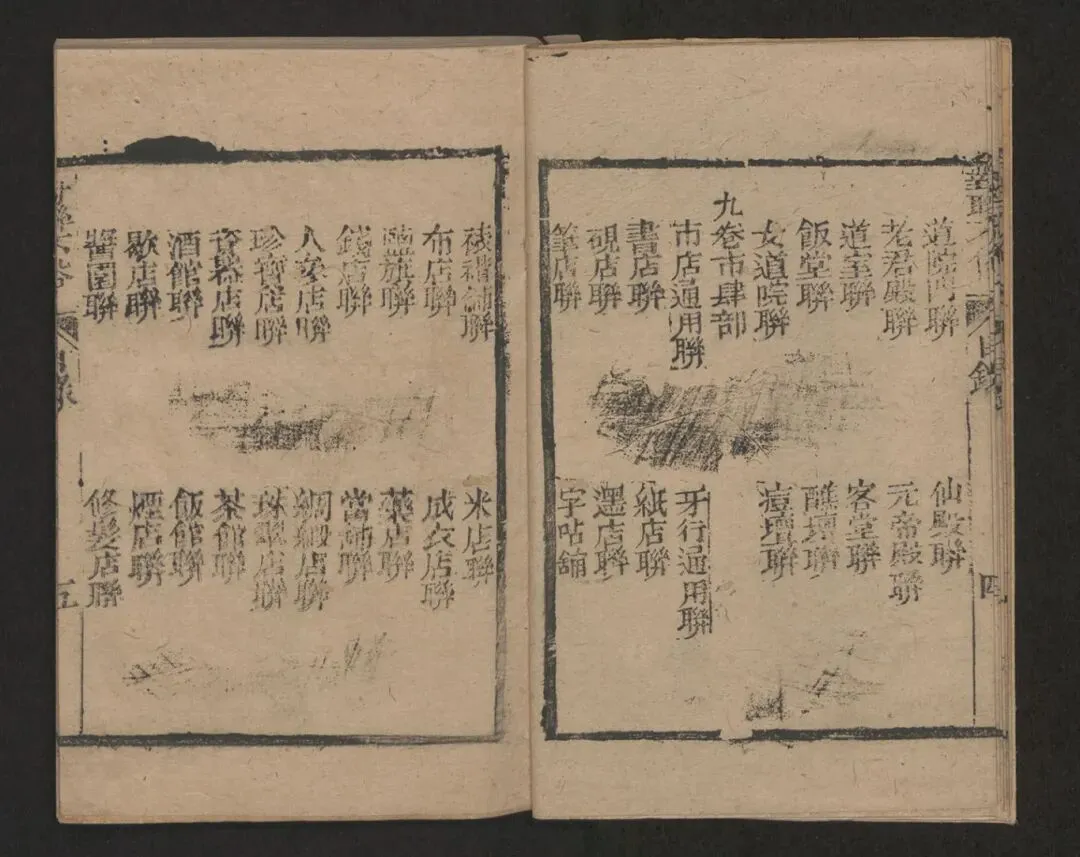 道院門聯
仙殿聯
老君殿聯
元帝殿聯
道室聯
客堂聯
飯堂聯
醮壇聯
女道院聯
痘壇聯
九卷市肆部
市店通用聯
牙行通用聯
書店聯
紙店聯
硯店聯
墨店聯
筆店聯
字帖舖
目錄
四
裱褙舖聯
米店聯
布店聯
成衣店聯
藥店聯
錢店聯
當舖聯
人參店聯
綢緞店聯
珍寶店聯
珠翠店聯
茶館聯
酒館聯
飯館聯
歇店聯
煙店聯
醬園聯
修髮店聯
目錄
五